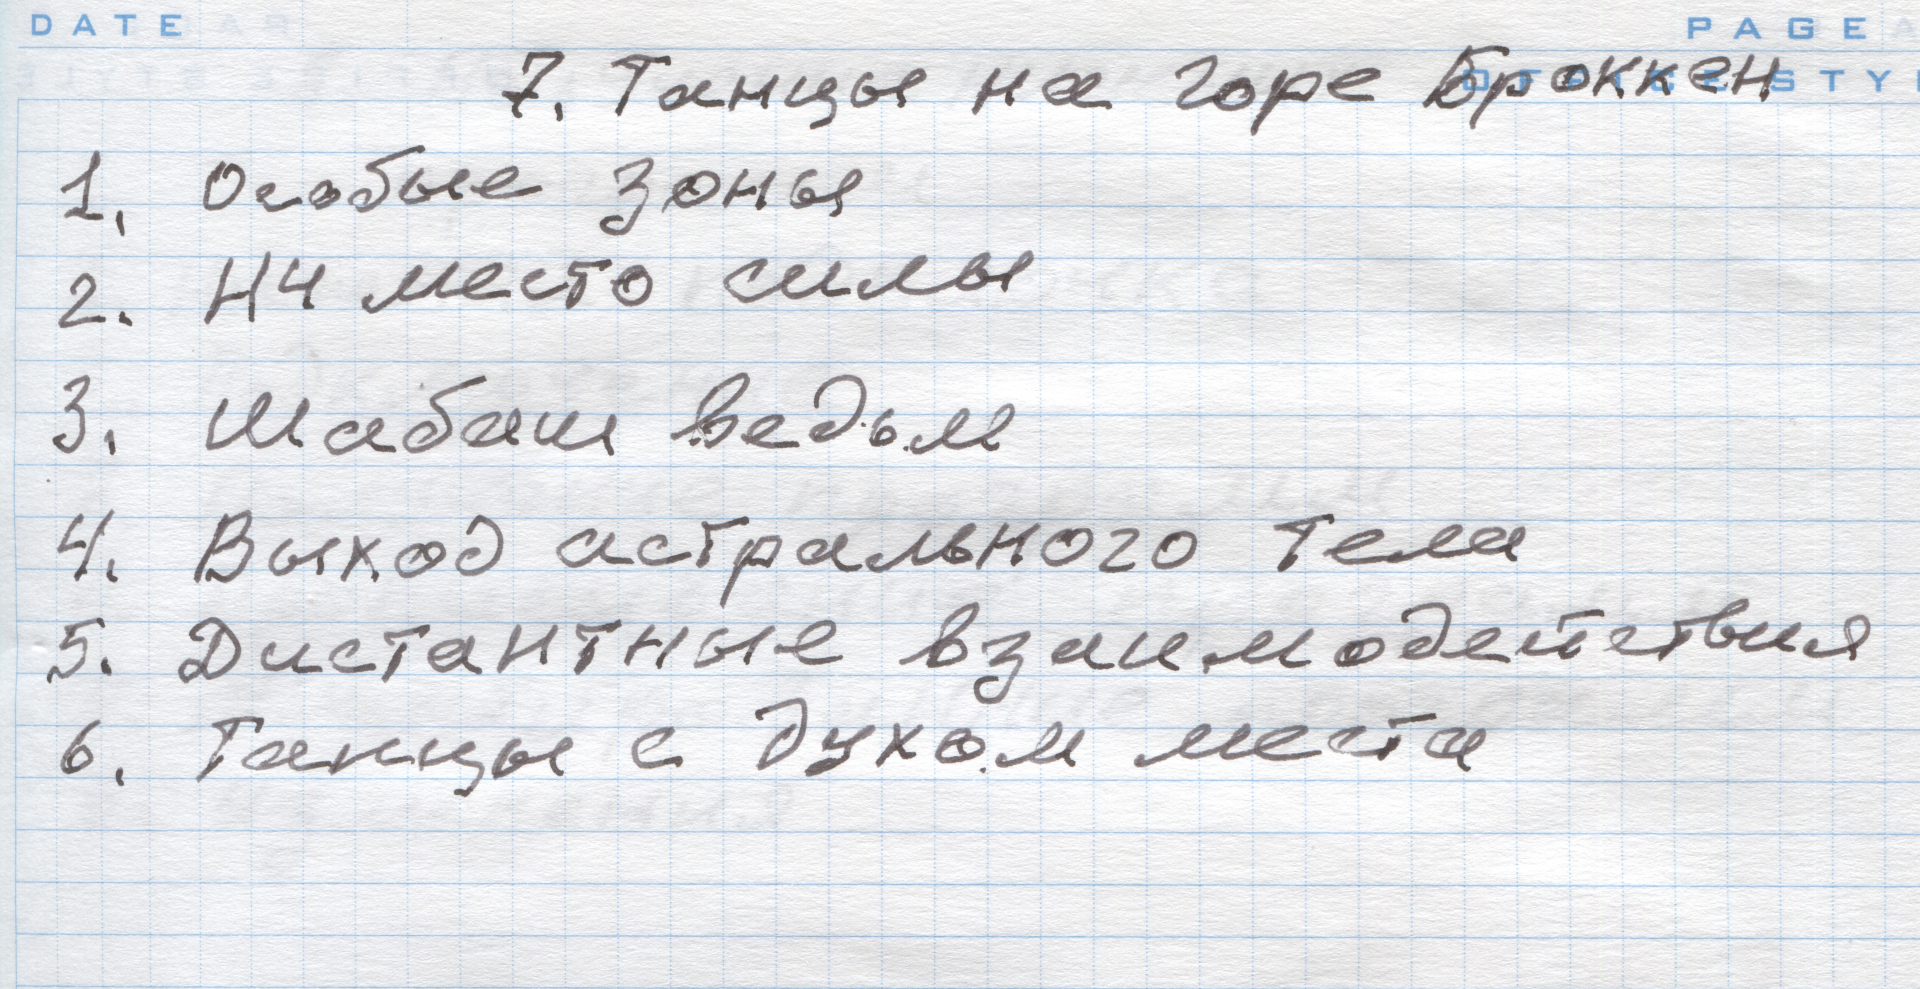 DATE
PAGE
7. Танцы на горе Броккен
1. Особые зоны
2. НЧ место силы
3. Шабаш ведьм
4. Выход астрального тела
5. Дистантные взаимодействия
6. Танцы с духом места